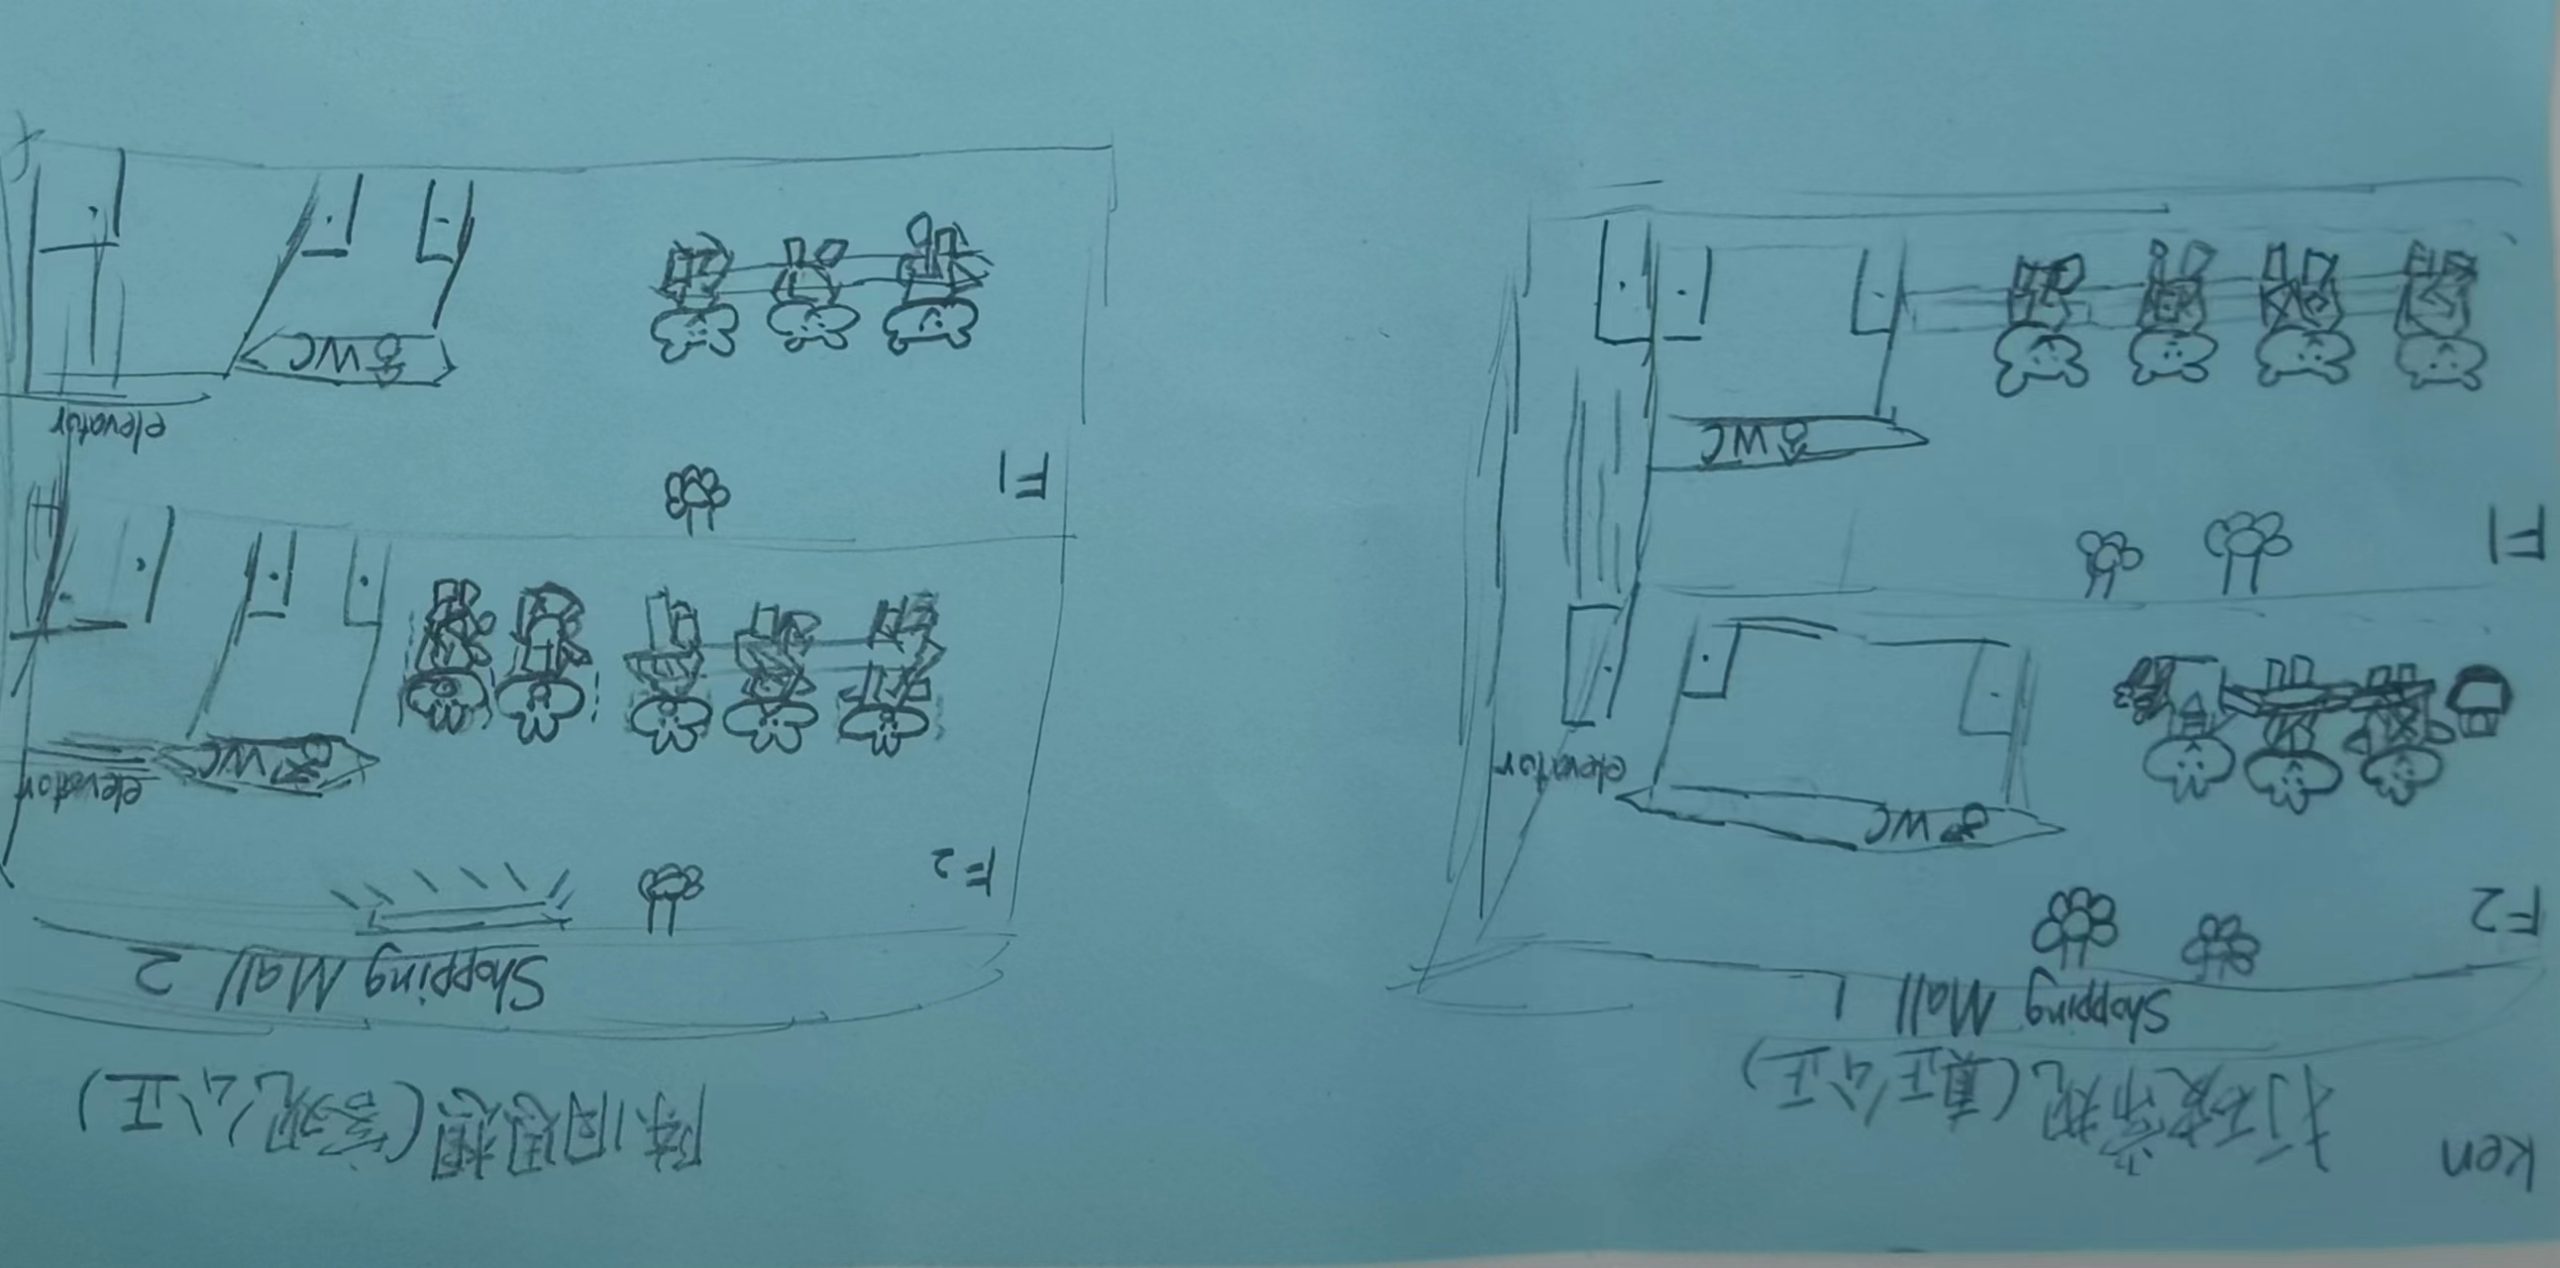 Ken
打破常规(真正公正)
Shopping Mall 1
F2
WC
elevator
F1
WC
陈旧思想(客观公正)
Shopping Mall 2
F2
WC
elevator
F1
elevator
WC